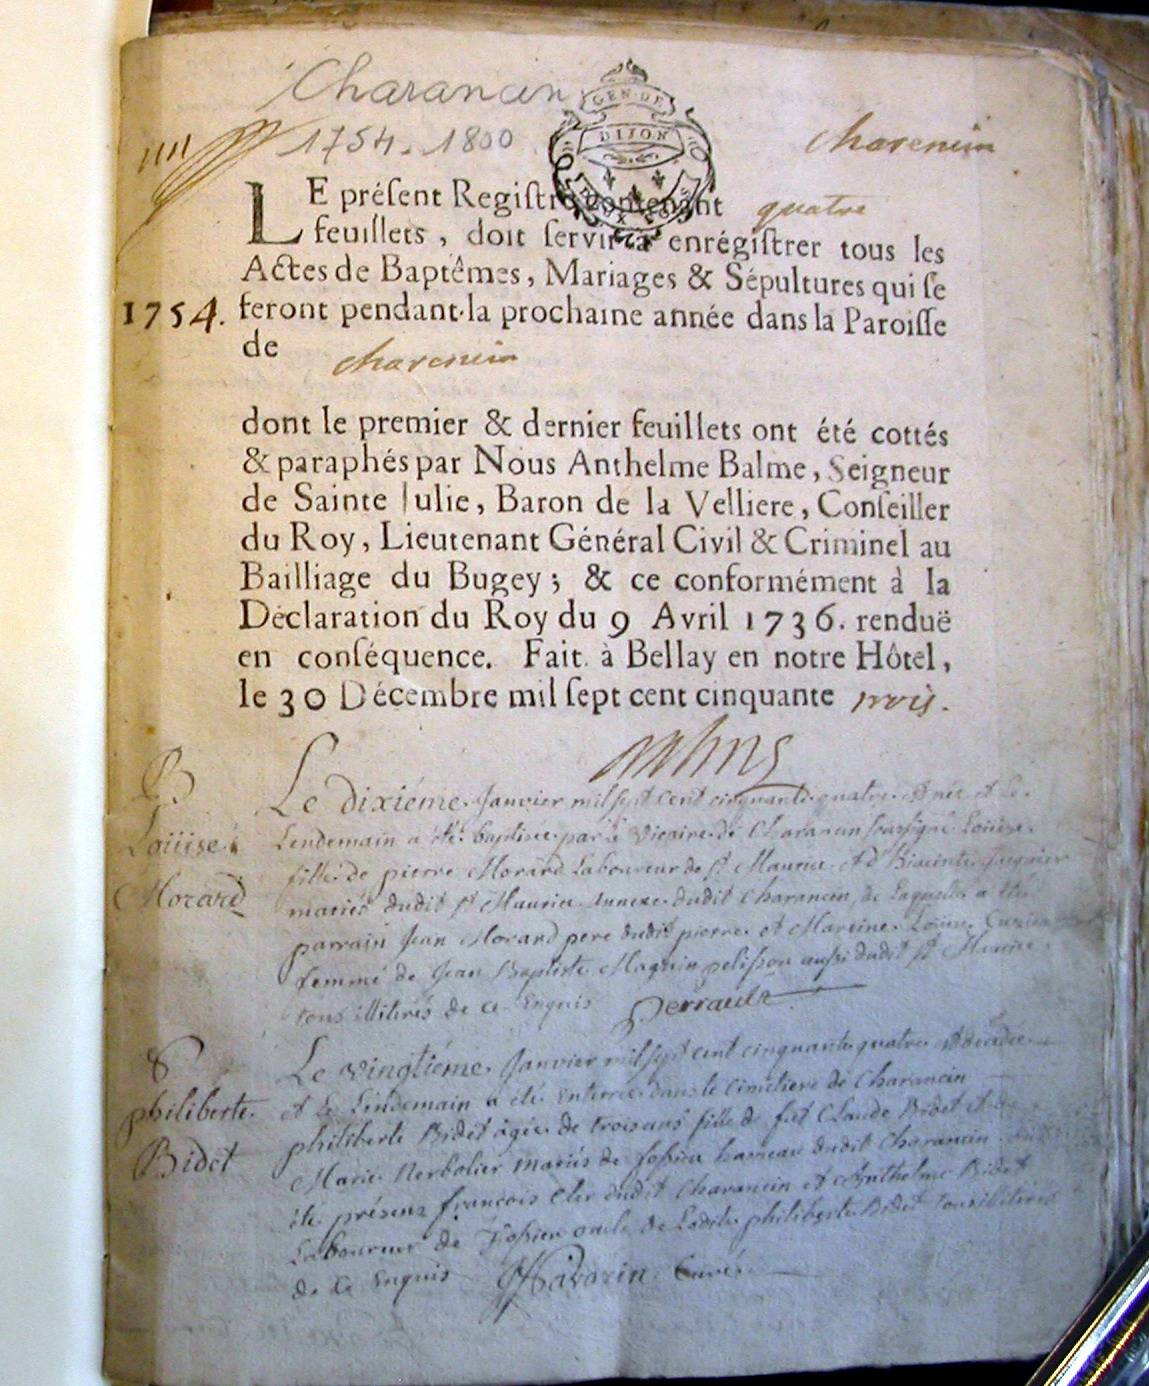 Charancin
GEN · DE
DIJON
1754 - 1800
charencin
LE préſent Regiſtre contenant quatre
feuillets, doit ſervir à enrégiſtrer tous les
Actes de Baptêmes, Mariages & Sépultures qui ſe
1754. feront pendant la prochaine année dans la Paroiſſe
de charencin
dont le premier & dernier feuillets ont été cottés
& paraphés par Nous Anthelme Balme, Seigneur
de Sainte Julie, Baron de la Velliere, Conſeiller
du Roy, Lieutenant Général Civil & Criminel au
Bailliage du Bugey; & ce conformément à la
Déclaration du Roy du 9 Avril 1736. renduë
en conſéquence. Fait à Bellay en notre Hôtel,
le 30 Décembre mil ſept cent cinquante trois.
B.
Loüise
Morard
Le dixiéme Janvier mil sept cent cinquante quatre est née et le
Lendemain a été baptisée par le vicaire de Charancin soussigné Loüise
fille de pierre Morard Laboureur de st Maurice et d'
mariés dudit st Maurice Annexe dudit Charancin de Laquelle a été
parrain Jean Morard pere dudit pierre et Marraine Loüise
femme de Jean Baptiste Magnin pelisson aussi dudit st Maurice
tous illitérés de ce Enquis Perrault
S
philiberte
Bidet
Le vingtiéme Janvier mil sept cent cinquante quatre est décédée
et le Lendemain a été Enterrée dans le cimetiere de Charancin
philiberte Bidet agée de trois ans fille de fut Claude Bidet et de
Marie mariés de hameau dudit Charancin
été présens françois dudit Charancin et Anthelme Bidet
Laboureur de oncle de Ladite philiberte Bidet tous illitérés
de ce Enquis Curé